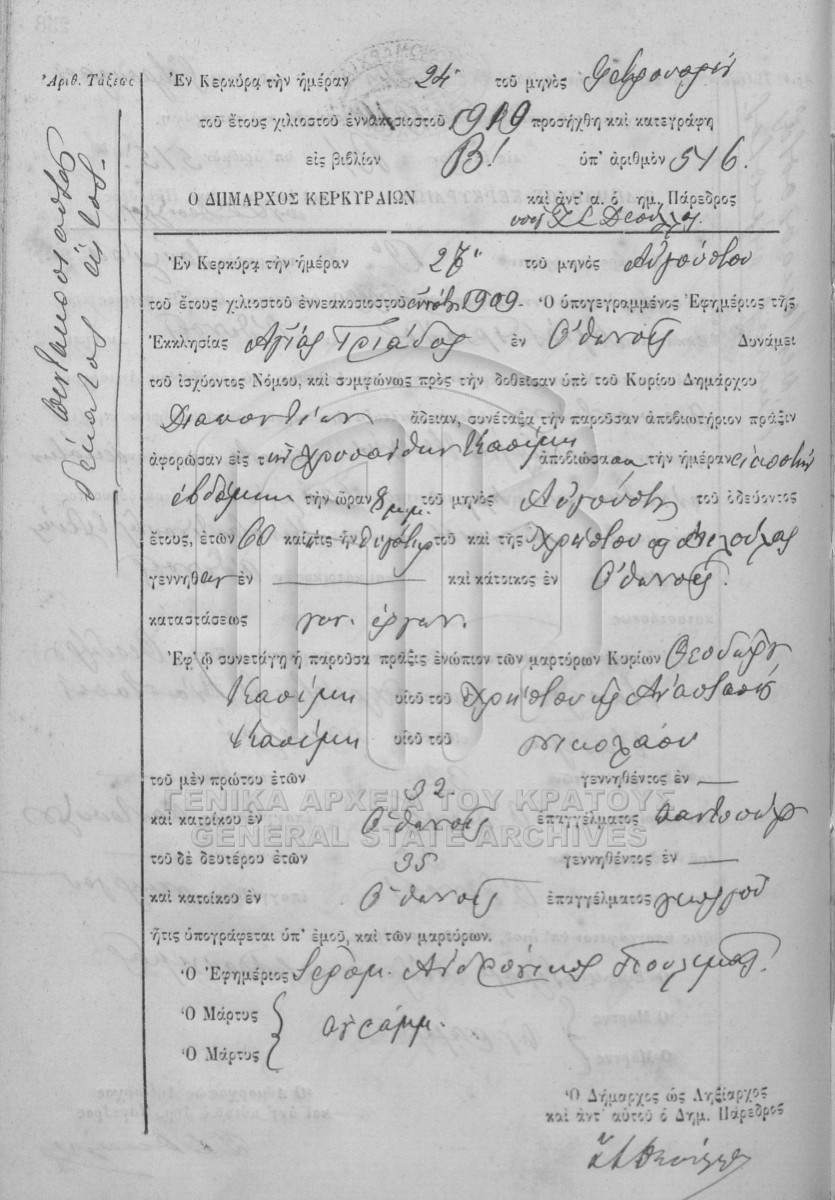 Ἀριθ. Τάξεως
πεντακοσιοστὸς
δέκατος ἕκτος.
Ἐν Κερκύρᾳ τὴν ἡμέραν 24 τοῦ μηνὸς Φεβρουαρίου
τοῦ ἔτους χιλιοστοῦ ἐννακοσιοστοῦ 1910 προσήχθη καὶ κατεγράφη
εἰς βιβλίον Β! ὑπ' ἀριθμὸν 516.
Ο ΔΗΜΑΡΧΟΣ ΚΕΡΚΥΡΑΙΩΝ καὶ ἀντ' α. ὁ δημ. Πάρεδρος
Ἐν Κερκύρᾳ τὴν ἡμέραν τοῦ μηνὸς Αὐγούστου
τοῦ ἔτους χιλιοστοῦ ἐννεακοσιοστοῦ ἐννάτου 1909 - Ὁ ὑπογεγραμμένος Ἐφημέριος τῆς
Ἐκκλησίας Ἁγίας Τριάδος ἐν Ὀθωνοῖς Δυνάμει
τοῦ ἰσχύοντος Νόμου, καὶ συμφώνως πρὸς τὴν δοθεῖσαν ὑπὸ τοῦ Κυρίου Δημάρχου
Διαποντίων ἄδειαν, συνέταξα τὴν παροῦσαν ἀποβιωτήριον πρᾶξιν
ἀφορῶσαν εἰς τὴν Χρυσάνθην Κασίμη ἀποβιώσασαν τὴν ἡμέραν εἰκοστὴν
ἑβδόμην τὴν ὥραν 8 μ.μ. τοῦ μηνὸς Αὐγούστου τοῦ ὁδεύοντος
ἔτους, ἐτῶν 60 καὶ ἥτις ἦν θυγάτηρ τοῦ καὶ τῆς Χρήστου καὶ
γεννηθεῖσαν ἐν — καὶ κάτοικος ἐν Ὀθωνοῖς.
καταστάσεως
Ἐφ' ᾧ συνετάγη ἡ παροῦσα πρᾶξις ἐνώπιον τῶν μαρτύρων Κυρίων Θεοδώρου
Κασίμη υἱοῦ τοῦ Χρήστου καὶ Ἀναστασίου
Κασίμη υἱοῦ τοῦ Νικολάου
τοῦ μὲν πρώτου ἐτῶν 32 - γεννηθέντος ἐν —
ΓΕΝΙΚΑ ΑΡΧΕΙΑ ΤΟΥ ΚΡΑΤΟΥΣ
καὶ κατοίκου ἐν Ὀθωνοῖς ἐπαγγέλματος παντοπώλου
GENERAL STATE ARCHIVES
τοῦ δὲ δευτέρου ἐτῶν 35 γεννηθέντος ἐν —
καὶ κατοίκου ἐν Ὀθωνοῖς ἐπαγγέλματος γεωργοῦ
ἥτις ὑπογράφεται ὑπ' ἐμοῦ, καὶ τῶν μαρτύρων.
Ὁ Ἐφημέριος Ἱερομ. Ἀνδρόνικος
Ὁ Μάρτυς
ἀγράμμ.
Ὁ Μάρτυς
Ὁ Δήμαρχος ὡς Ληξίαρχος
καὶ ἀντ' αὐτοῦ ὁ Δημ. Πάρεδρος